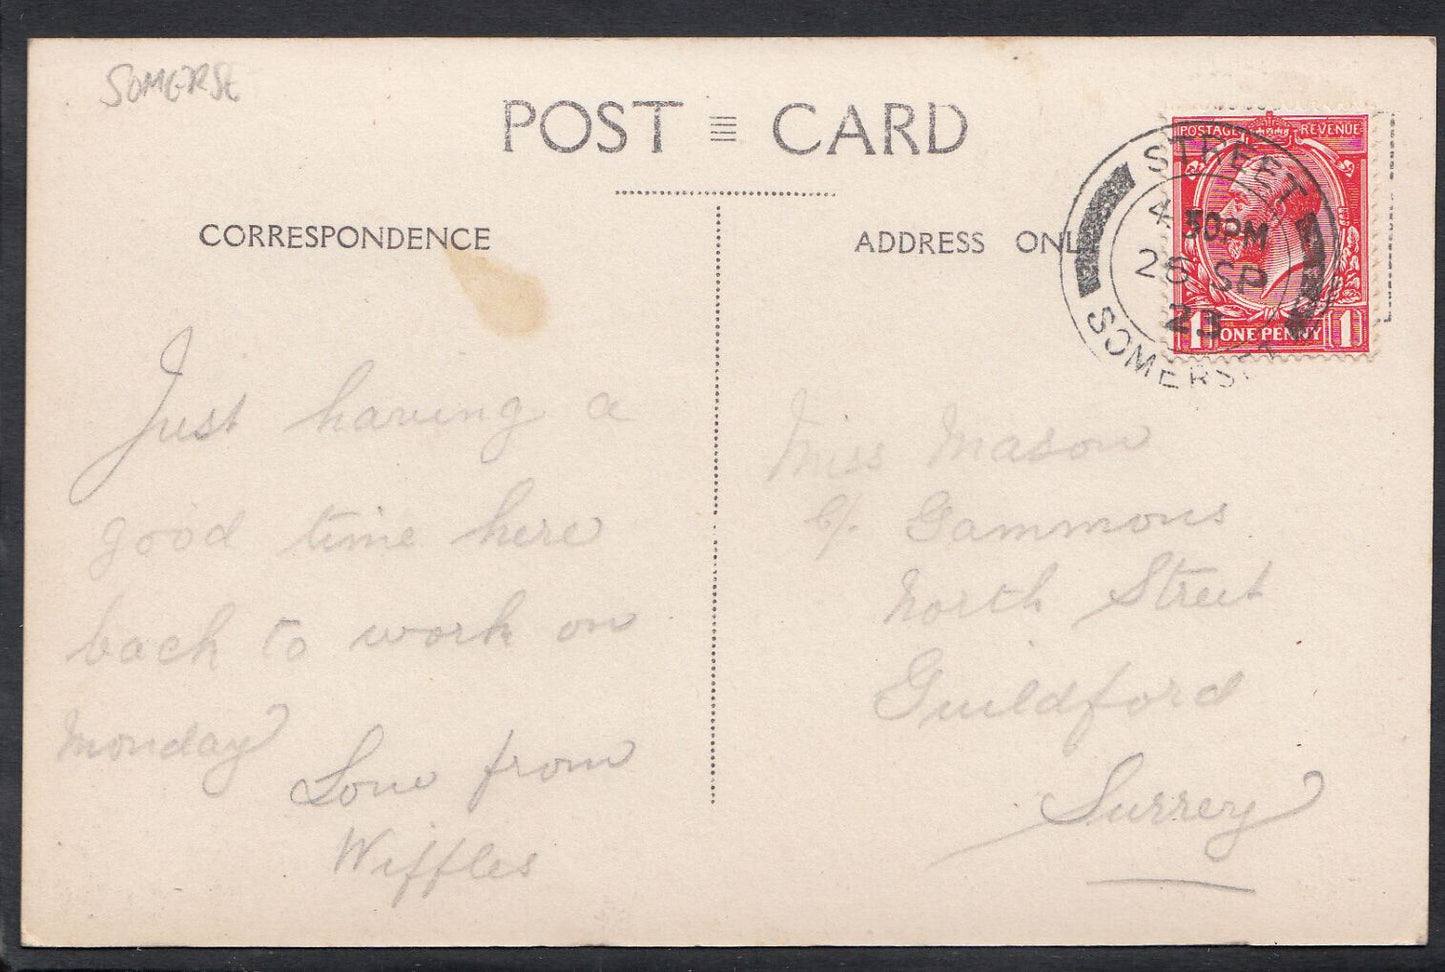 SOMERSE
POST CARD
CORRESPONDENCE
ADDRESS ONLY
POSTAGE REVENUE
1 ONE PENNY 1
STREET
4 30PM
26 SP
23
SOMERSET
Just having a
good time here
back to work on
Monday
Love from
Wiffles
Miss Mason
c/. Gammons
North Street
Guildford
Surrey